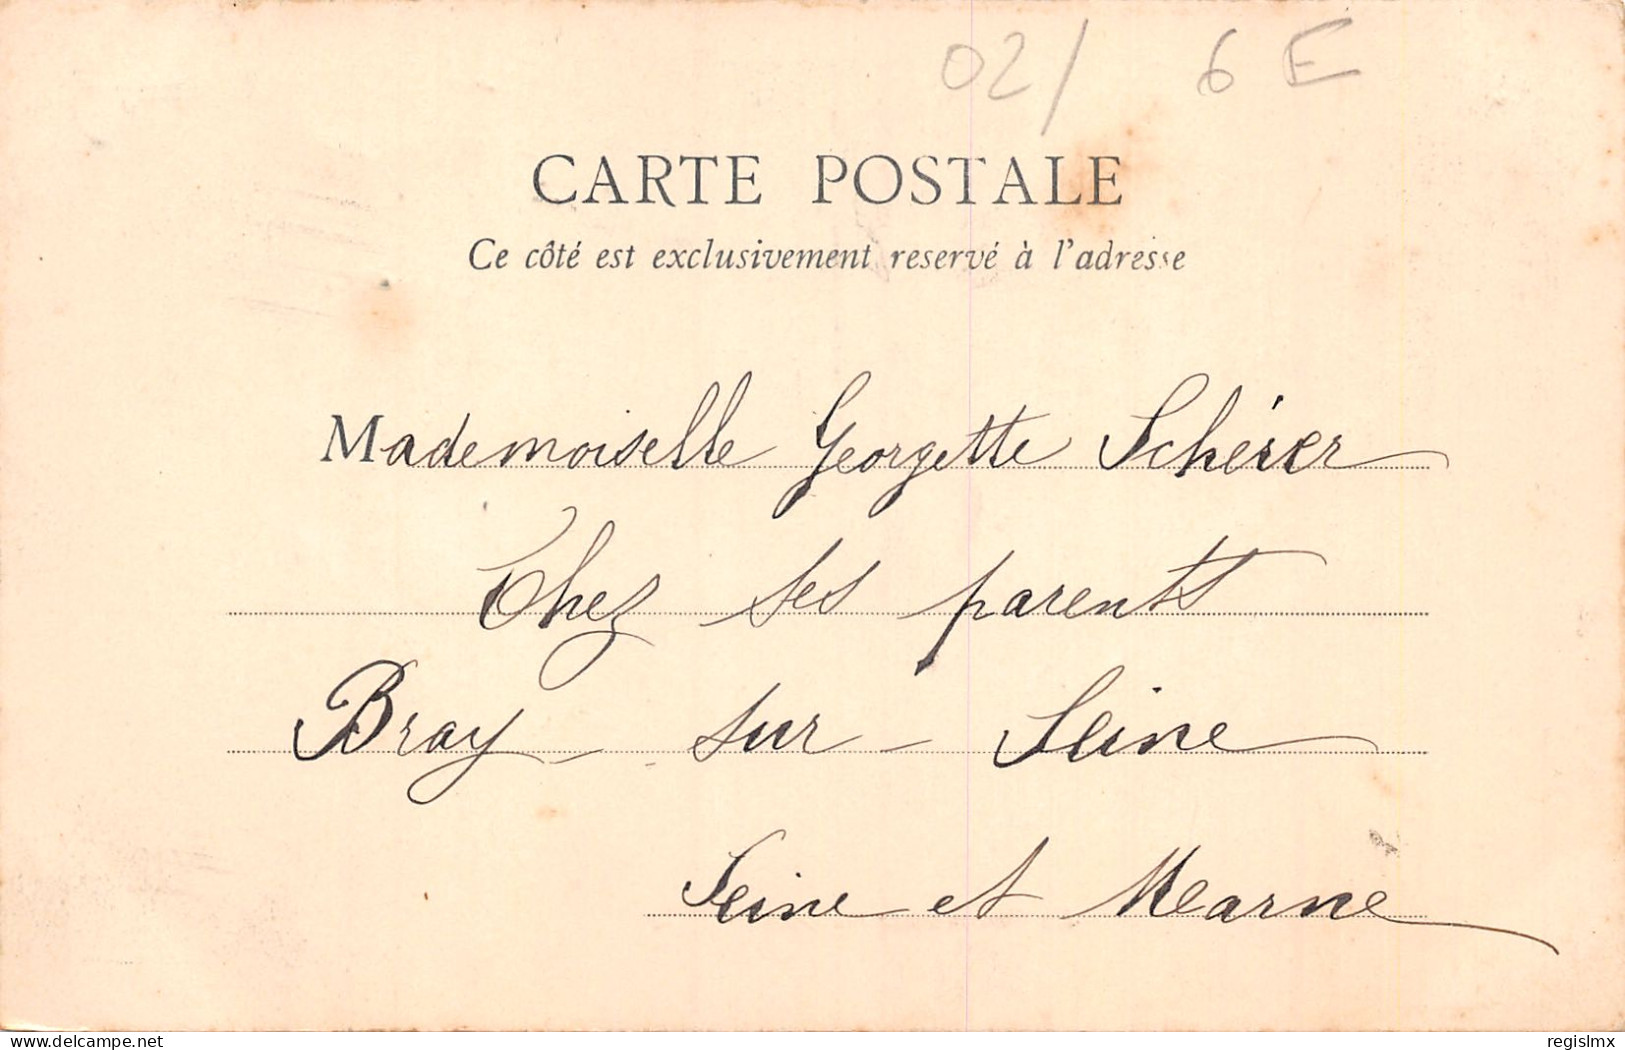 02/ 6 E
CARTE POSTALE
Ce côté est exclusivement reservé à l'adresse
Mademoiselle Georgette Schérer
Chez ses parents
Bray - sur - Seine
Seine et Marne
delcampe.net
regislmx